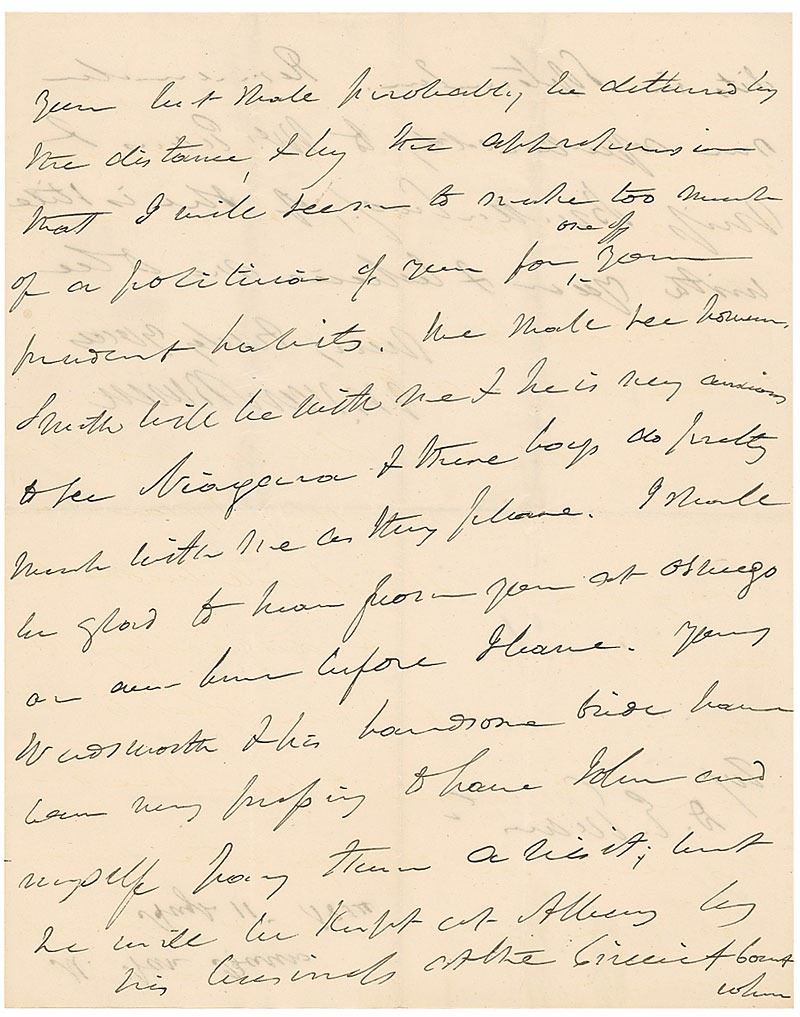 you but shall probably be deterred by
the distance, & by the apprehension
that I will seem to make too much
of a politician of you for one of your
prudent habits. We shall see however.
Smith will be with me & he is very anxious
to see Niagara & these boys do pretty
much with me as they please. I shall
be glad to hear from you at Oswego
or before I leave. Young
Wadsworth & his handsome bride have
been very pressing to have John and
myself pay them a visit; but
he will be kept at Albany by
his business at the Circuit Court
when